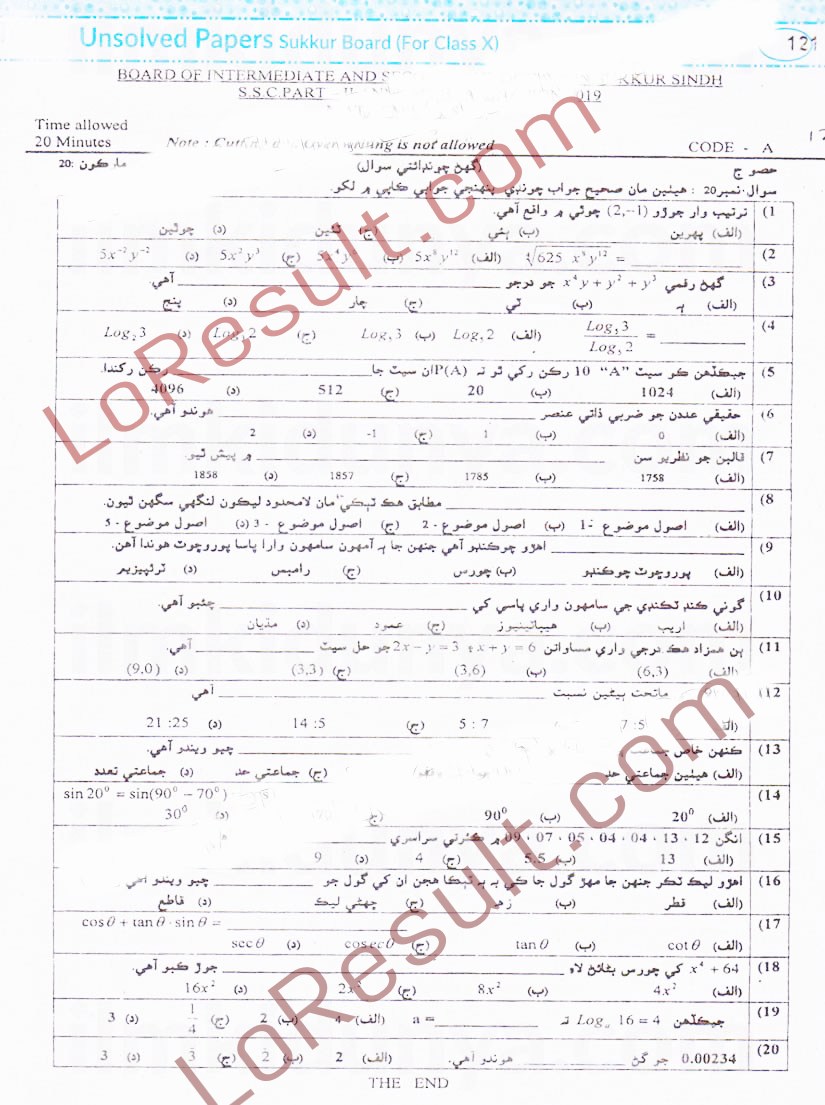 Unsolved Papers Sukkur Board (For Class X)
121
BOARD OF INTERMEDIATE AND KKUR SINDH
S.S.C.PART 019
Time allowed
20 Minutes
Note : is not allowed
CODE - A
حصو ج
(گهڻ چونڊائتي سوال)
مارڪون :20
سوال نمبر20 : هيٺين مان صحيح جواب چونڊي پنهنجي جوابي ڪاپي ۾ لکو.
(1 ترتيب وار جوڙو (1-,2) چوٿي ۾ واقع آهي.
(الف) پهرين (ب) ٻئي (ج) ٽئين (د) چوٿين
(2 ∜625 x⁸y¹² = ______ (الف) 5x⁸y¹² (ب) 5x⁴y (ج) 5x²y³ (د) 5x⁻²y⁻²
(3 گهڻ رقمي x⁴y + y² + y³ جو درجو ______ آهي.
(الف) ٻه (ب) ٽي (ج) چار (د) پنج
(4 Log₅3 / Log₅2 = ______ (الف) Log₅2 (ب) Log₅3 (ج) Log₃2 (د) Log₂3
(5 جيڪڏهن ڪو سيٽ “A” 10 رڪن رکي ٿو ته P(A)ان سيٽ جا ______ رڪن رکندا.
(الف) 1024 (ب) 20 (ج) 512 (د) 4096
(6 حقيقي عددن جو ضربي ذاتي عنصر ______ هوندو آهي.
(الف) 0 (ب) 1 (ج) -1 (د) 2
(7 قالبن جو نظريو سن ______ ۾ پيش ٿيو.
(الف) 1758 (ب) 1785 (ج) 1857 (د) 1858
(8 ______ مطابق هڪ ٽٻڪي مان لامحدود ليڪون لنگهي سگهن ٿيون.
(الف) اصول موضوع - 1 (ب) اصول موضوع - 2 (ج) اصول موضوع - 3 (د) اصول موضوع - 5
(9 ______ اهڙو چوڪنڊو آهي جنهن جا ٻه آمهون سامهون وارا پاسا پوروچوٽ هوندا آهن.
(الف) پوروچوٽ چوڪنڊو (ب) چورس (ج) رامبس (د) ٽرئپيزيم
(10 گوني ڪنڊ ٽڪنڊي جي سامهون واري پاسي کي ______ چئبو آهي.
(الف) اريب (ب) هيپاٽينيوز (ج) عمود (د) مڌيان
(11 ٻن همزاد هڪ درجي واري مساواتن x + y = 6 ۽ 2x − y = 3 جو حل سيٽ ______ آهي.
(الف) (6,3) (ب) (3,6) (ج) (3,3) (د) (9,0)
(12 ماتحت ٻيڻين نسبت ______ آهي
(الف) 7 :5 5 : 7 (ج) 14 :5 (د) 21 :25
(13 ڪنهن خاص ______ چيو ويندو آهي.
(الف) هيٺين جماعتي حد (ج) جماعتي حد (د) جماعتي تعدد
(14 sin 20⁰ = sin(90⁰ − 70⁰)
(الف) 20⁰ (ب) 90⁰ (ج) (د) 30⁰
(15 انگن 12 ، 13 ، 04 ، 04 ، 05 ، 07 ، 09 ۾ ڪثرتي سراسري ______
(الف) 13 (ب) 5.5 (ج) 4 (د) 9
(16 اهڙو ليڪ ٽڪر جنهن جا مهڙ گول جا ڪي به ٻه ٽٻڪا هجن ان کي گول جو ______ چيو ويندو آهي
(الف) قطر (ب) زهه (ج) ڇهڻي ليڪ (د) قاطع
(17 cosθ + tanθ · sinθ = ______
(الف) cotθ (ب) tanθ (ج) cosecθ (د) secθ
(18 x⁴ + 64 کي چورس بڻائڻ لاءِ ______ جوڙ ڪبو آهي.
(الف) 4x² (ب) 8x² (ج) 2x² (د) 16x²
(19 جيڪڏهن Logₐ 16 = 4 ته a = ______ (الف) 4 (ب) 2 (ج) 1/4 (د) 3
(20 0.00234 جو گڻ ______ هوندو آهي. (الف) 2 (ب) 2̄ (ج) 3̄ (د) 3
THE END
LoResult.com
LoResult.com